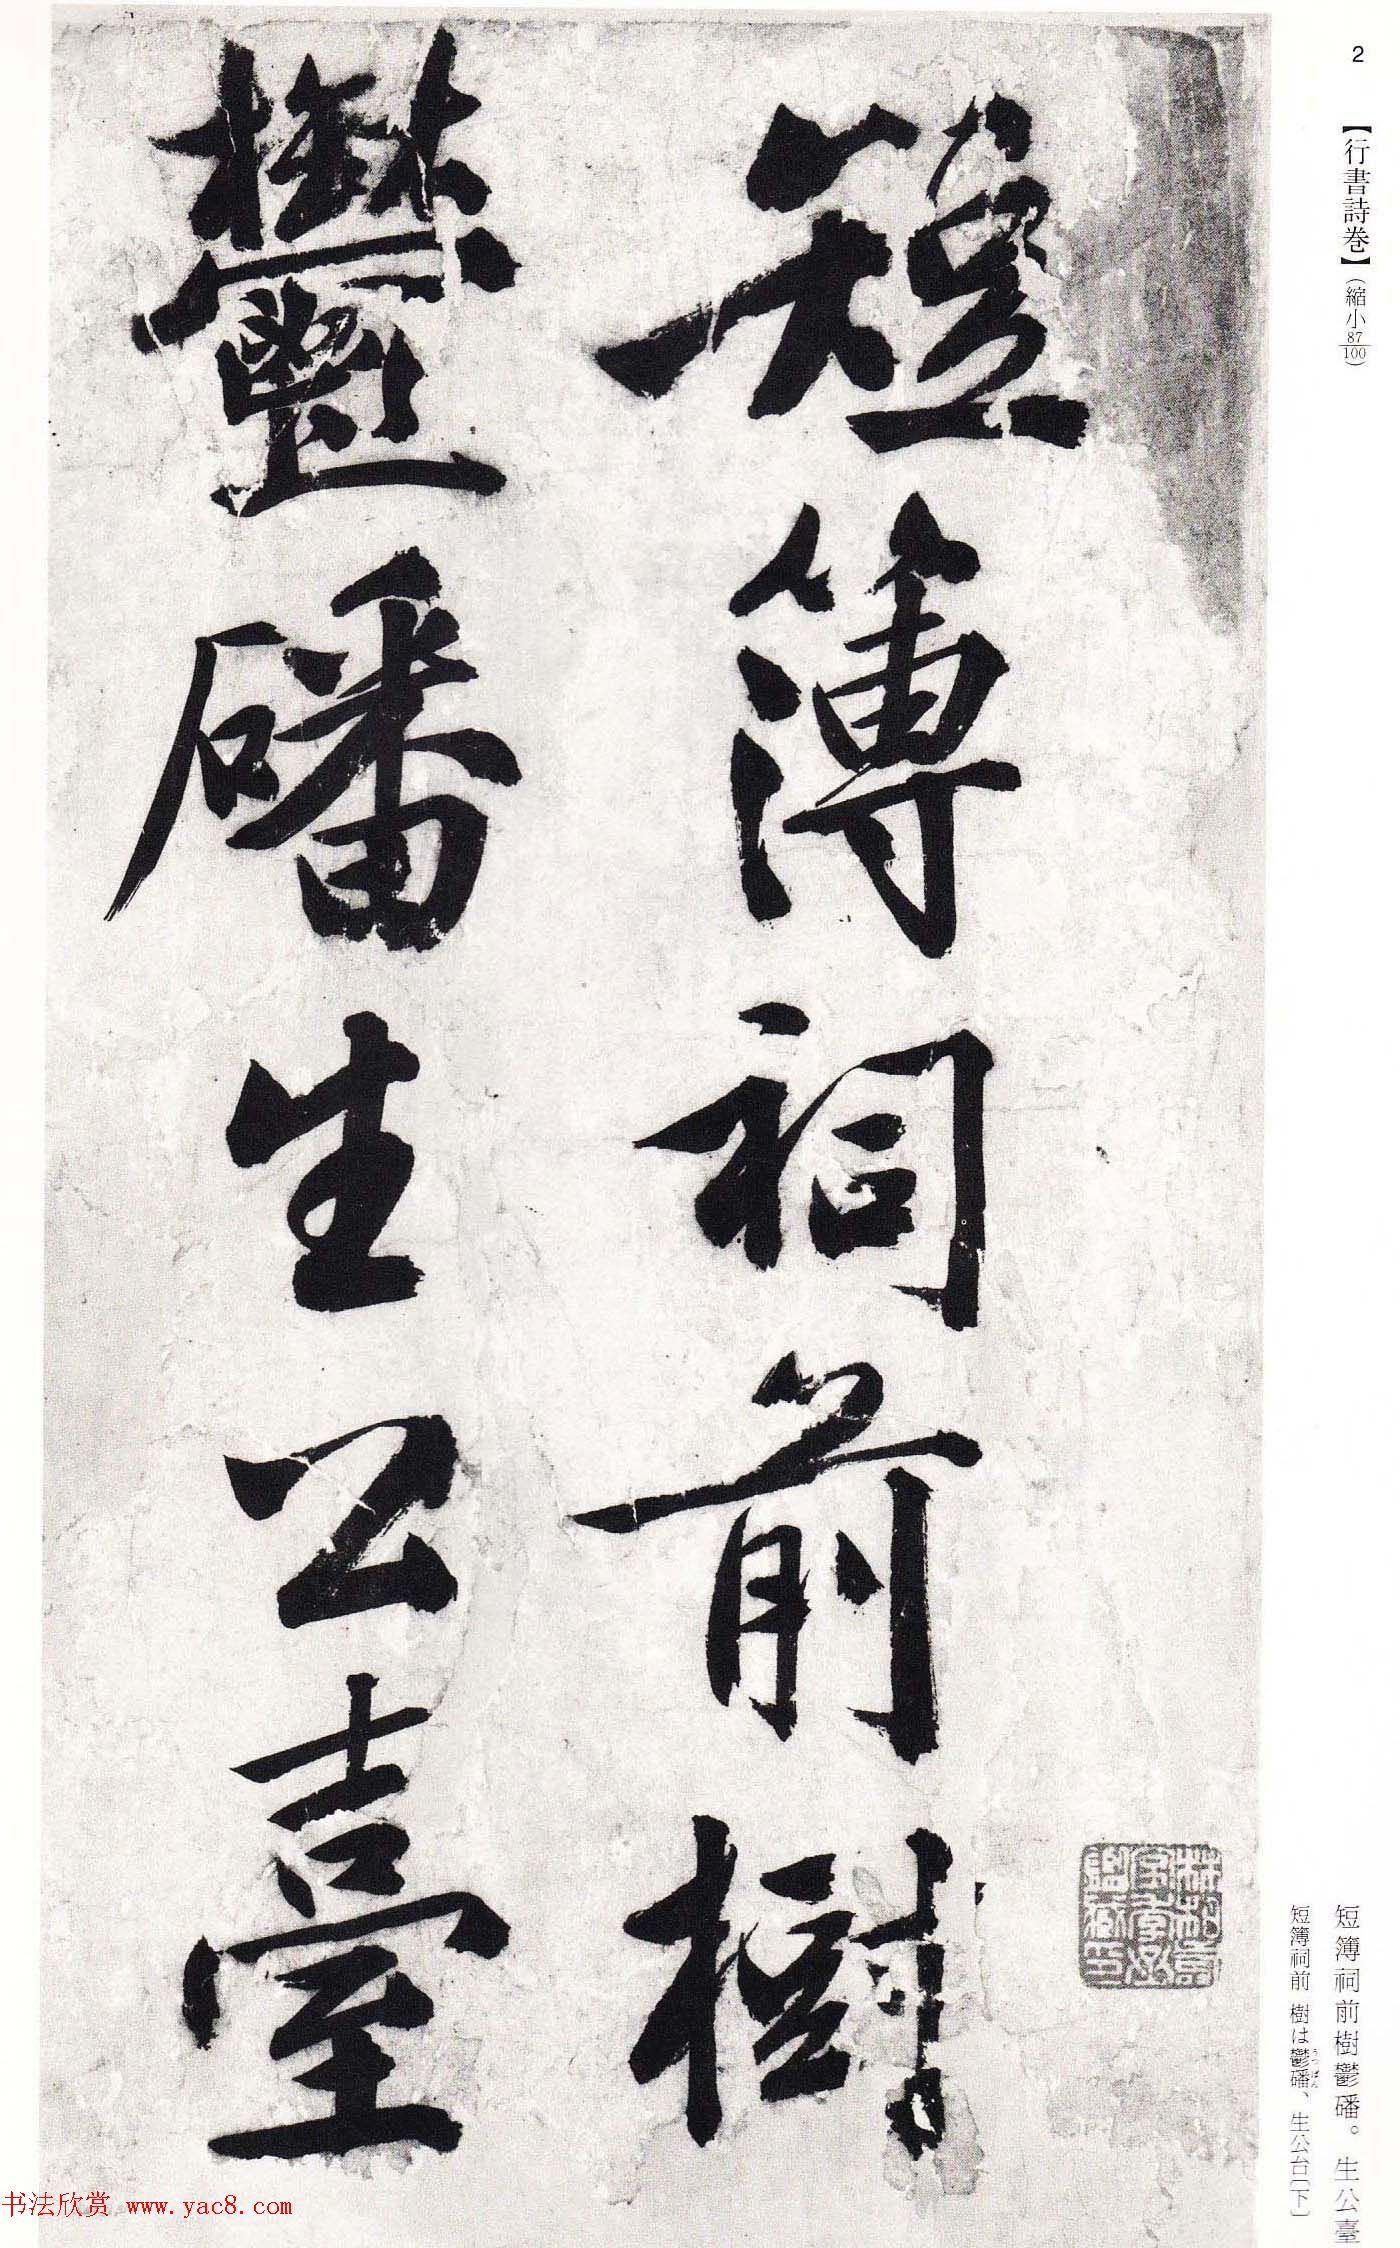 2
【行書詩巻】(縮小87/100)
短簿祠前樹
鬱磻生公臺
短簿祠前樹鬱磻。生公臺
短簿祠前 樹は鬱磻、生公台〔下〕
うっぱん
书法欣赏 www.yac8.com